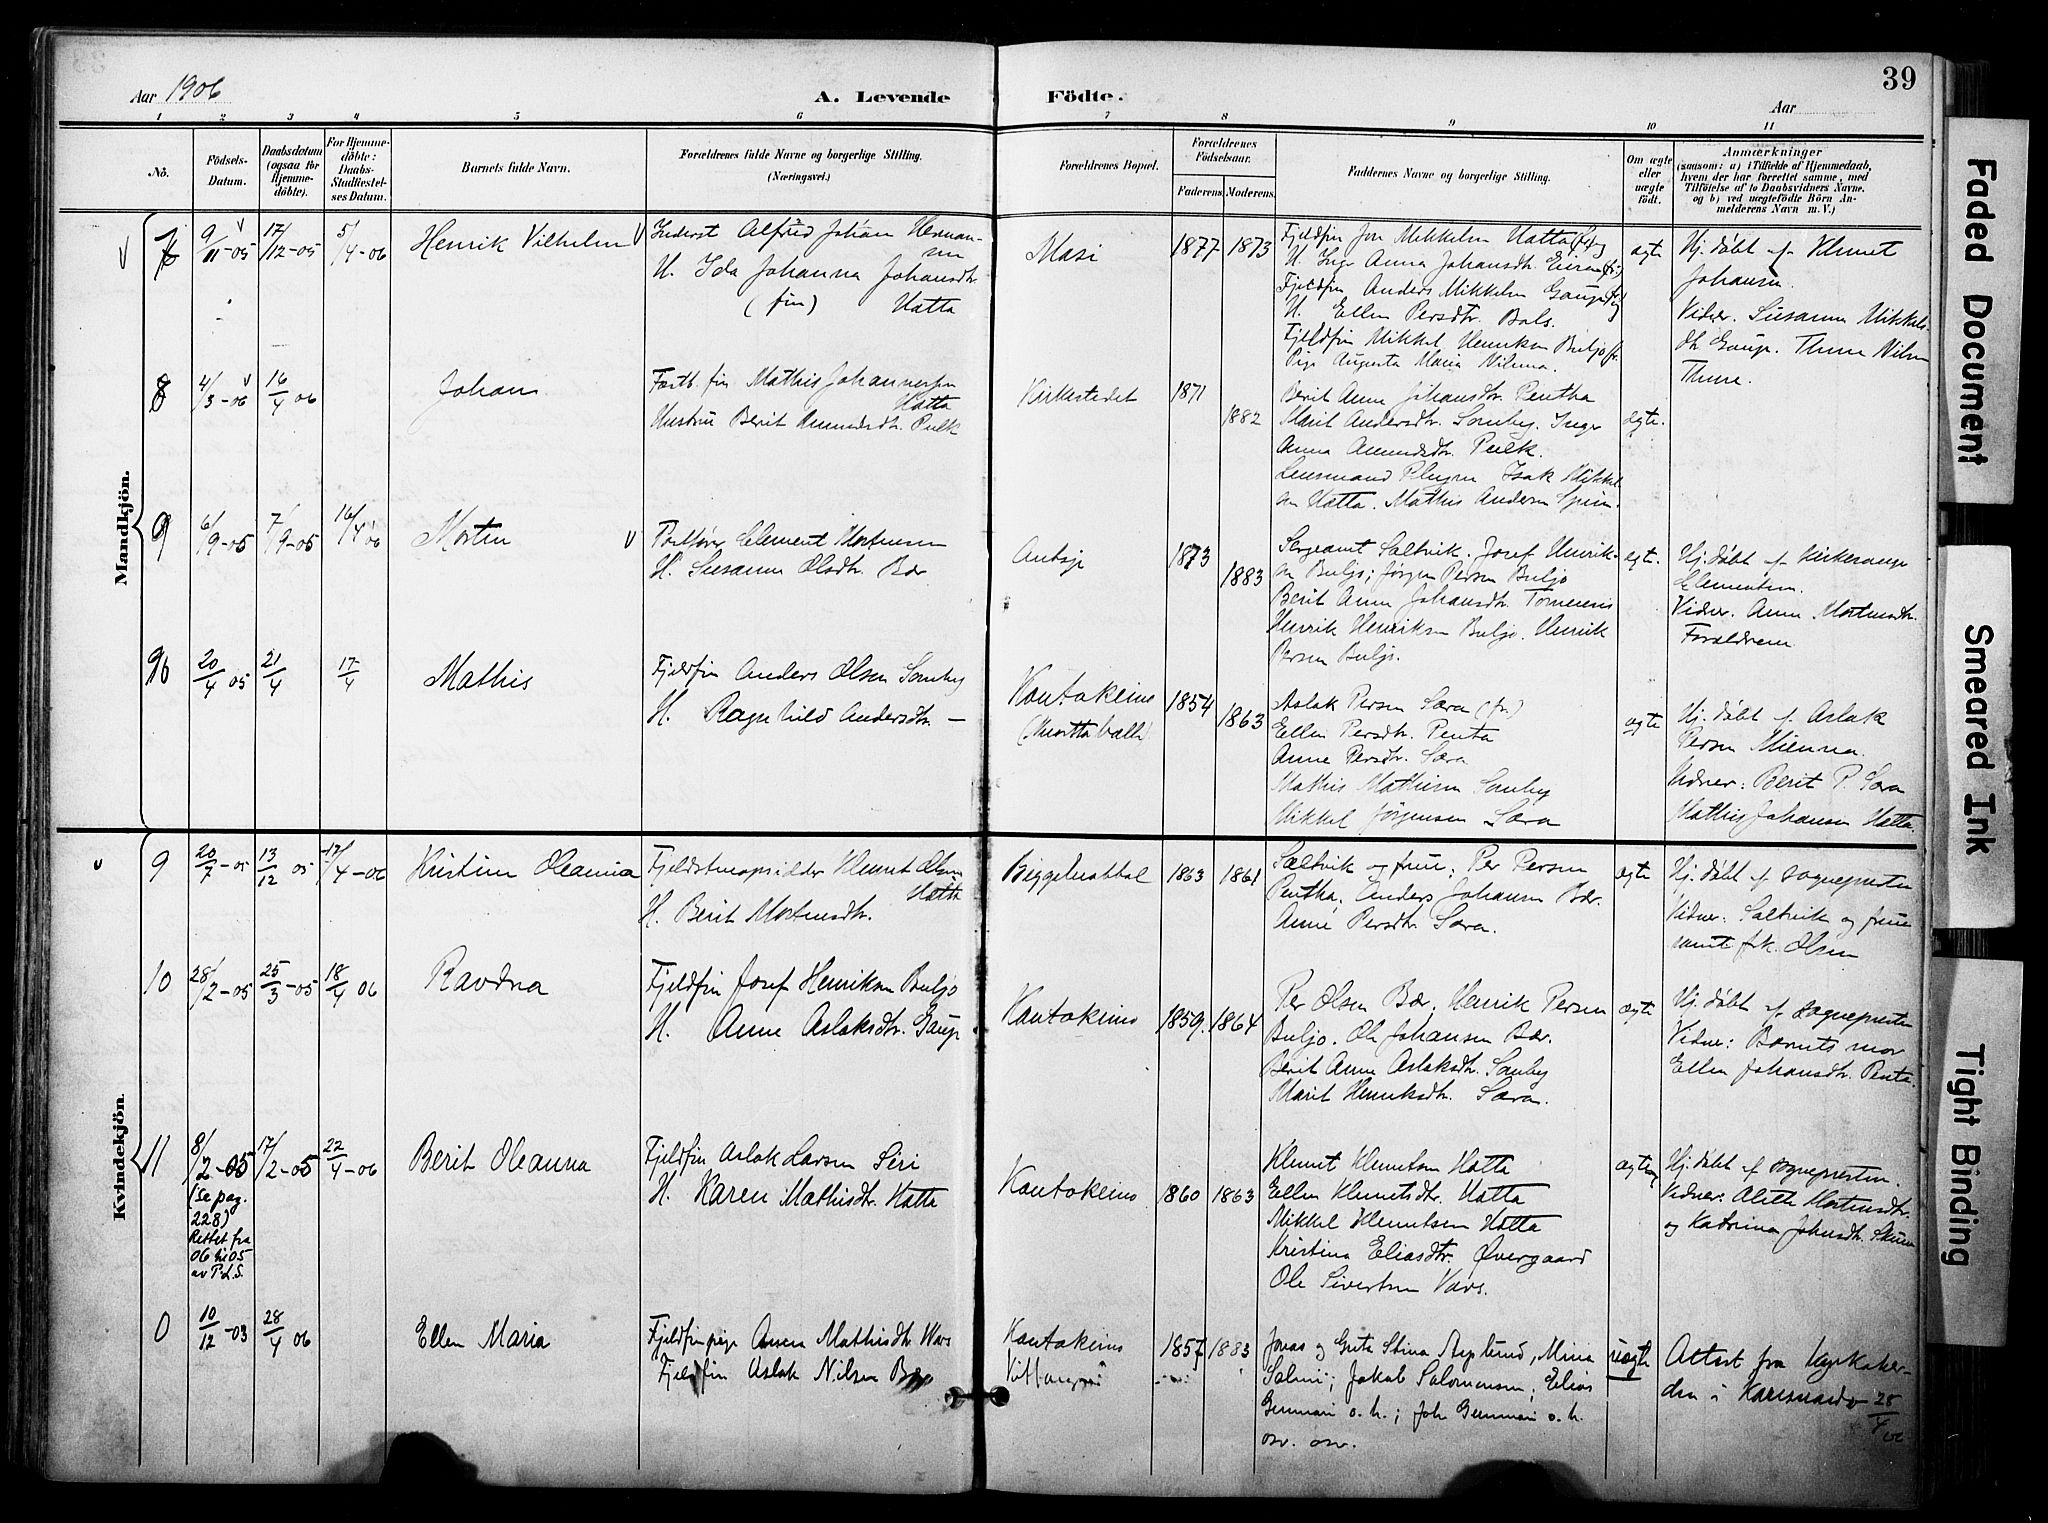 Aar 1906
A. Levende Födte.
Aar
39
1 2 3 4 5 6 7 8 9 10 11
No.
Födsels-Datum.
Daabsdatum (ogsaa for Hjemme-döbte).
For Hjemme-döbte: Daabs-Stadfæstel-ses Datum.
Barnets fulde Navn.
Forældrenes fulde Navne og borgerlige Stilling. (Næringsvei.)
Forældrenes Bopæl.
Forældrenes Födselsaar.
Faderens. Moderens.
Faddernes Navne og borgerlige Stilling.
Om ægte eller uægte födt.
Anmærkninger
(saasom: a) i Tilfælde af Hjemmedaab, hvem der har forrettet samme, med Tilföielse af to Daabsvidners Navne. og b) ved uægtefödte Börn An-melderens Navn m. V.)
Mandkjön.
7 9/11-05 17/12-05 5/4-06 Henrik Vilhelm
Inderst Alfred Johan Herman-
sen
H. Ida Johanna Johansdtr
(fin) Hatta
Masi 1877 1873
Fjeldfin Jon Mikkelsen Hatta (fr) og
H. Inga Anna Johansdtr. Eira (fr)
Fjeldfin Anders Mikkelsen Gaup (fr) og
H. Ellen Persdtr. Bals.
Fjeldfin Mikkel Henriksen Buljo (fr.
Pige Augusta Maria Nilsena.
ægte
Hj. døbt af Klemet
Johansen.
Vidner. Susanna Mikkels-
dtr Gaup. Thure Nilsen
Thure.
8 4/3-06 16/4 06 Johan
Fastb. fin Mathis Johannessen
Hatta
Hustru Berit Amundsdtr. Pulk
Kirkestedet 1871 1882
Berit Anne Johansdtr. Pentha
Marit Andersdtr. Somby. Inger
Anna Amundsdtr. Pulk.
Lensmand Plugen Isak Mikkel-
sen Hatta. Mathis Andersen Spein.
ægte.
9 6/9-05 7/9-05 16/4 06 Morten
Postfører Clement Mortensen
H. Susanne Olsdtr. Bær
Autsje 1873 1883
Sergeant Saltvik. Josef Henrik-
sen Buljo; Jørgen Persen Buljo
Berit Anne Johansdtr. Tornensis
Henrik Henriksen Buljo. Henrik
Persen Buljo.
ægte.
Hj. døbt af Kirkesanger
Clementsen.
Vidner. Anne Mortensdtr.
Forældrene.
10 20/4 05 21/4 17/4 Mathis
Fjeldfin Anders Olsen Somby
H. Ragnhild Andersdtr. —
Kautokeino 1854 1863
Aslak Persen Sara (fr.)
Ellen Persdtr. Penta
Anne Persdtr. Sara
Mathis Mathisen Somby
Mikkel Jørgensen Sara
ægte
Hj. døbt af Aslak
Persen Mienna.
Vidner: Berit P. Sara
Mathis Johansen Hætta.
Kvindekjön.
9 20/7-05 13/12 05 17/4-06 Kristine Oleanna
Fjeldstueopsidder Klemet Olsen
Hætta
H. Berit Mortensdtr.
1863 1861
Saltvik og frue; Per Persen
Pentha. Anders Johansen Bær.
Anne Persdtr. Sara.
ægte
Hj. døbt af sognepresten
Vidner: Saltvik og frue
samt frk. Olsen
10 28/2-05 25/3-05 18/4 06 Ravdna
Fjeldfin Josef Henriksen Buljo
H. Anne Aslaksdtr. Gaup
Kautokeino 1859. 1864
Per Olsen Bær. Henrik Persen
Buljo. Ole Johansen Bær.
Berit Anne Aslaksdtr. Somby
Marit Henriksdtr. Sara.
ægte
Hj. døbt af sognepresten
Vidner: Barnets mor
Ellen Johansdtr. Penta.
11 8/2-05 17/2-05 22/4-06 Berit Oleanna
(se pag.
228)
Rettet fra
06 til 05
av P.L.S.
Fjeldfin Aslak Larsen Siri
H. Karen Mathisdtr. Hatta
Kautokeino 1860 1863
Klemet Klemetsen Hatta
Ellen Klemetsdtr. Hatta
Mikkel Klemetsen Hatta
Kristina Eliasdtr. Øvergaard
Ole Sivertsen Vavs.
ægte
Hj. døbt af sognepresten.
Vidner: Aleth Mortensdtr.
og Katrina Johnsdtr. Skum
0 10/12-03 28/4 06 Ellen Maria
Fjeldfinpige Anna Mathisdtr. Wars
Fjeldfin Aslak Nilsen Bær
Kautokeino
Vittangi
1857 1883
Jonas og Greta Stina Asplund, Mina
Salmi; Jakob Salomonsen; Elias
Gunnari o. h.; Joh Gunnari o. h.
osv. osv.
uægte
Attest fra Kyrkoher-
den i Karesuando 28/4 06
Faded Document
Smeared Ink
Tight Binding